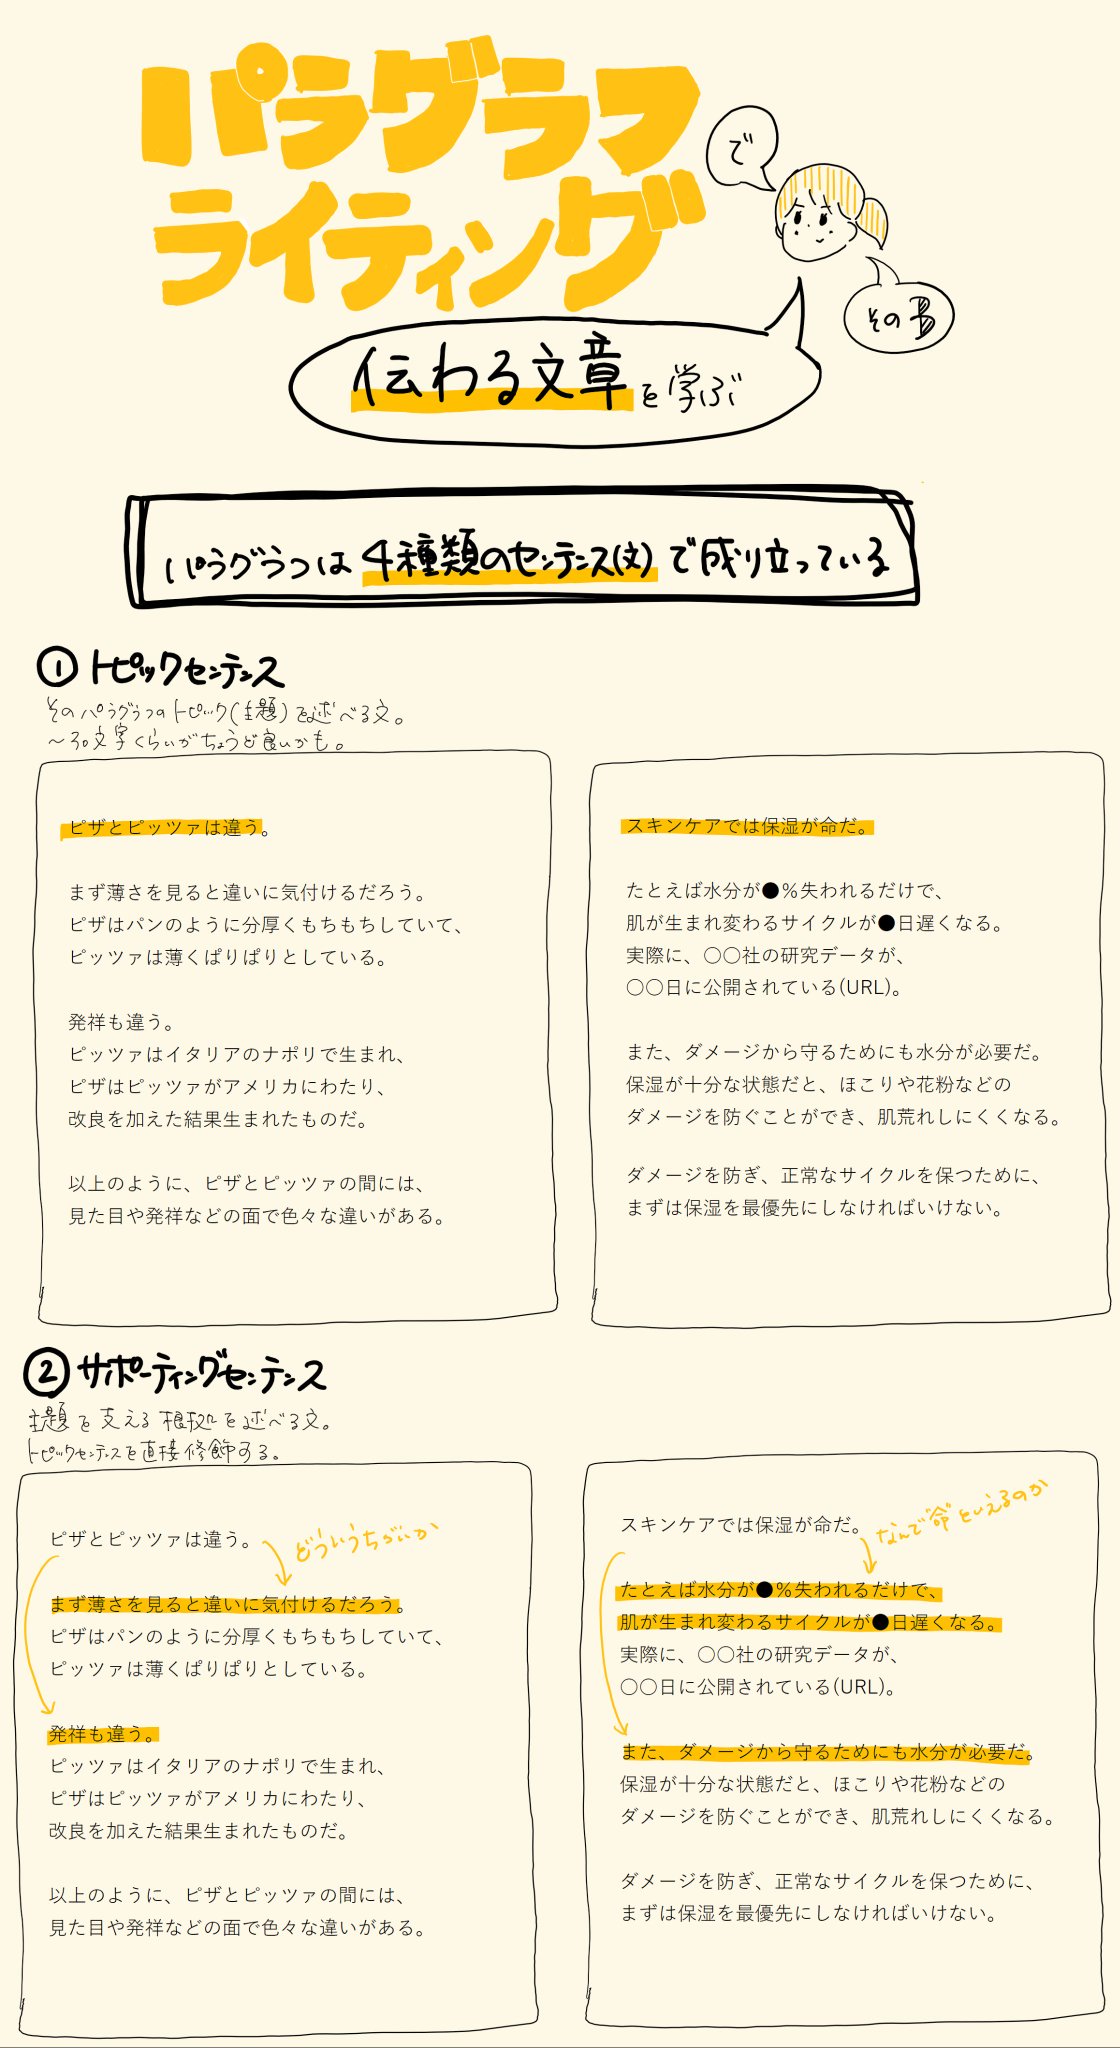 パラグラフ
ライティング
で
伝わる文章を学ぶ
その
パラグラフは4種類のセンテンス(文)で成り立っている
① トピックセンテンス
そのパラグラフのトピック(主題)を述べる文。
〜30文字くらいがちょうど良いかも。
ピザとピッツァは違う。
まず薄さを見ると違いに気付けるだろう。
ピザはパンのように分厚くもちもちしていて、
ピッツァは薄くぱりぱりとしている。
発祥も違う。
ピッツァはイタリアのナポリで生まれ、
ピザはピッツァがアメリカにわたり、
改良を加えた結果生まれたものだ。
以上のように、ピザとピッツァの間には、
見た目や発祥などの面で色々な違いがある。
スキンケアでは保湿が命だ。
たとえば水分が●%失われるだけで、
肌が生まれ変わるサイクルが●日遅くなる。
実際に、〇〇社の研究データが、
〇〇日に公開されている(URL)。
また、ダメージから守るためにも水分が必要だ。
保湿が十分な状態だと、ほこりや花粉などの
ダメージを防ぐことができ、肌荒れしにくくなる。
ダメージを防ぎ、正常なサイクルを保つために、
まずは保湿を最優先にしなければいけない。
② サポーティングセンテンス
主題を支える根拠を述べる文。
トピックセンテンスを直接修飾する。
ピザとピッツァは違う。
どういうちがいか
まず薄さを見ると違いに気付けるだろう。
ピザはパンのように分厚くもちもちしていて、
ピッツァは薄くぱりぱりとしている。
発祥も違う。
ピッツァはイタリアのナポリで生まれ、
ピザはピッツァがアメリカにわたり、
改良を加えた結果生まれたものだ。
以上のように、ピザとピッツァの間には、
見た目や発祥などの面で色々な違いがある。
スキンケアでは保湿が命だ。
なんで"命"といえるのか
たとえば水分が●%失われるだけで、
肌が生まれ変わるサイクルが●日遅くなる。
実際に、〇〇社の研究データが、
〇〇日に公開されている(URL)。
また、ダメージから守るためにも水分が必要だ。
保湿が十分な状態だと、ほこりや花粉などの
ダメージを防ぐことができ、肌荒れしにくくなる。
ダメージを防ぎ、正常なサイクルを保つために、
まずは保湿を最優先にしなければいけない。